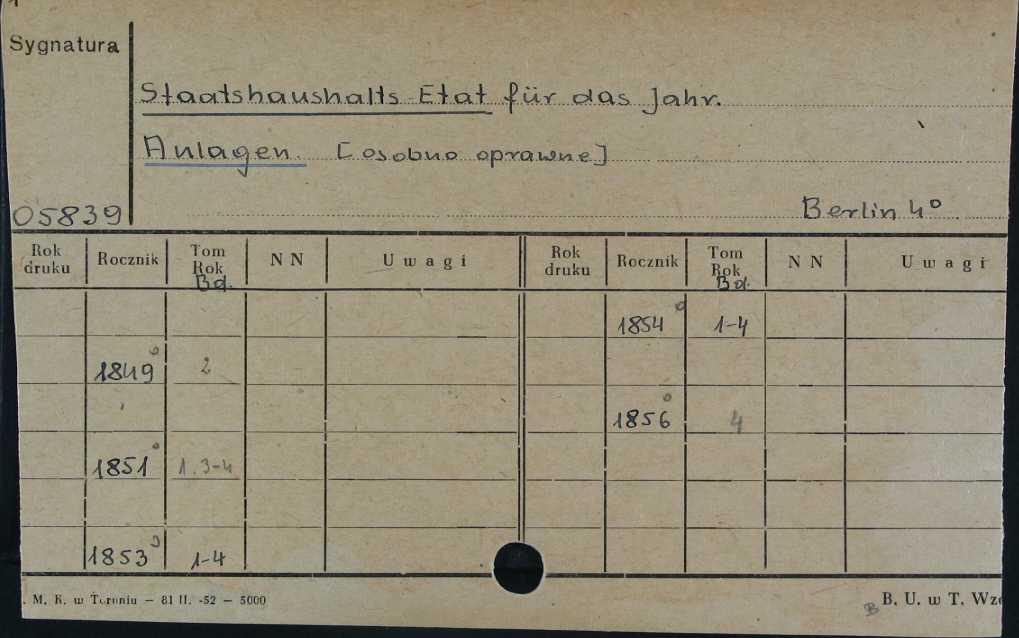 Sygnatura
Staatshaushalts-Etat für das Jahr.
Anlagen. [osobno oprawne]
05839
Berlin 4°
Rok druku Rocznik Tom Rok Bd. NN Uwagi Rok druku Rocznik Tom Rok Bd. NN Uwagi
1854° 1-4
1849° 2
1856° 4
1851° 1.3-4
1853° 1-4
. M. K. w Toruniu — 81 II. -52 — 5000
B B. U. w T. Wzó